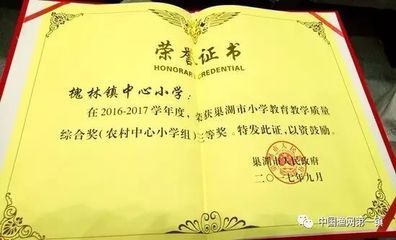 荣誉证书
HONORARY CREDENTIAL
槐林镇中心小学：
在2016-2017学年度，荣获巢湖市小学教育教学质量
综合奖(农村中心小学组)三等奖。特发此证，以资鼓励。
巢湖市人民政府
二〇一七年九月
中国渔网第一镇